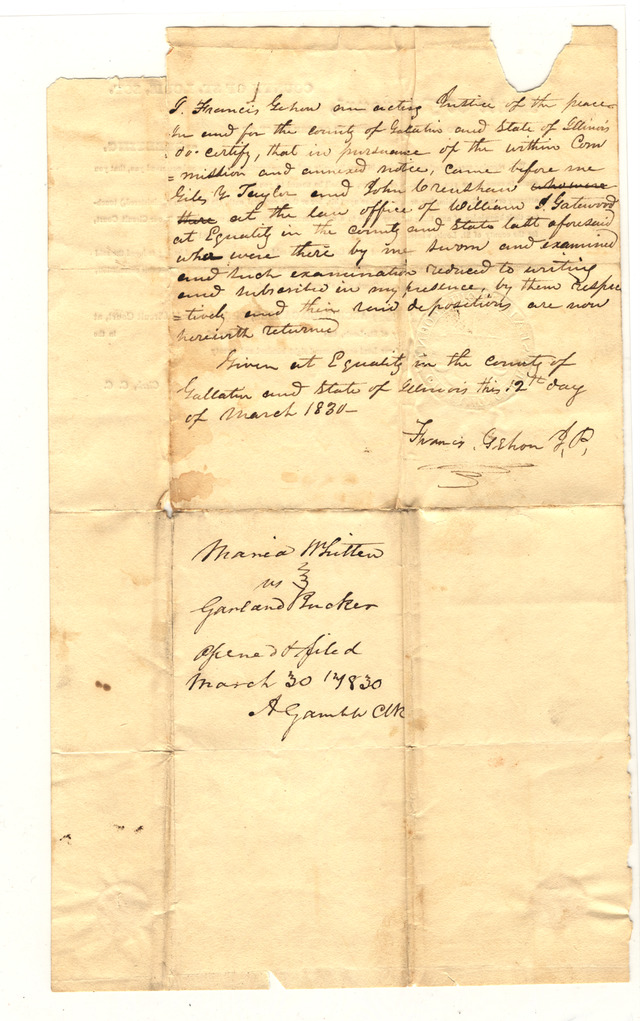 I, Francis Gehon an acting Justice of the peace
in and for the county of Gallatin and State of Illinois
do certify, that in pursuance of the within Com
=mission and annexed notice, came before me
Giles Y Taylor and John Crenshaw who were
there at the law office of William J Gatewood
at Equality in the county and State last aforesaid
who were there by me sworn and examined
and such examination reduced to writing
and subscribed in my presence, by them respec
=tively and their said depositions are now
herewith returned
Given at Equality in the county of
Gallatin and State of Illinois this 12th day
of March 1830—
Francis Gehon J, P,
Maria Whitten
vs
Garland Rucker
Opened & filed
March 30 1830
A Gamble Clk